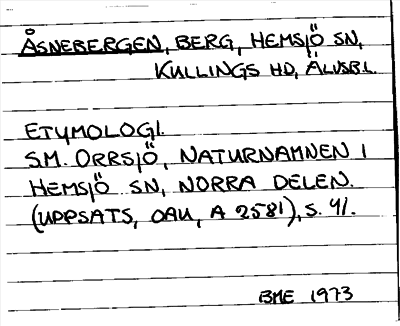 ÅSNEBERGEN, BERG, HEMSJÖ SN,
KULLINGS HD, ÄLVSB L.
ETYMOLOGI.
S.M. ORRSJÖ, NATURNAMNEN I
HEMSJÖ SN, NORRA DELEN.
(UPPSATS, OAU, A 2581), S. 41.
BME 1973